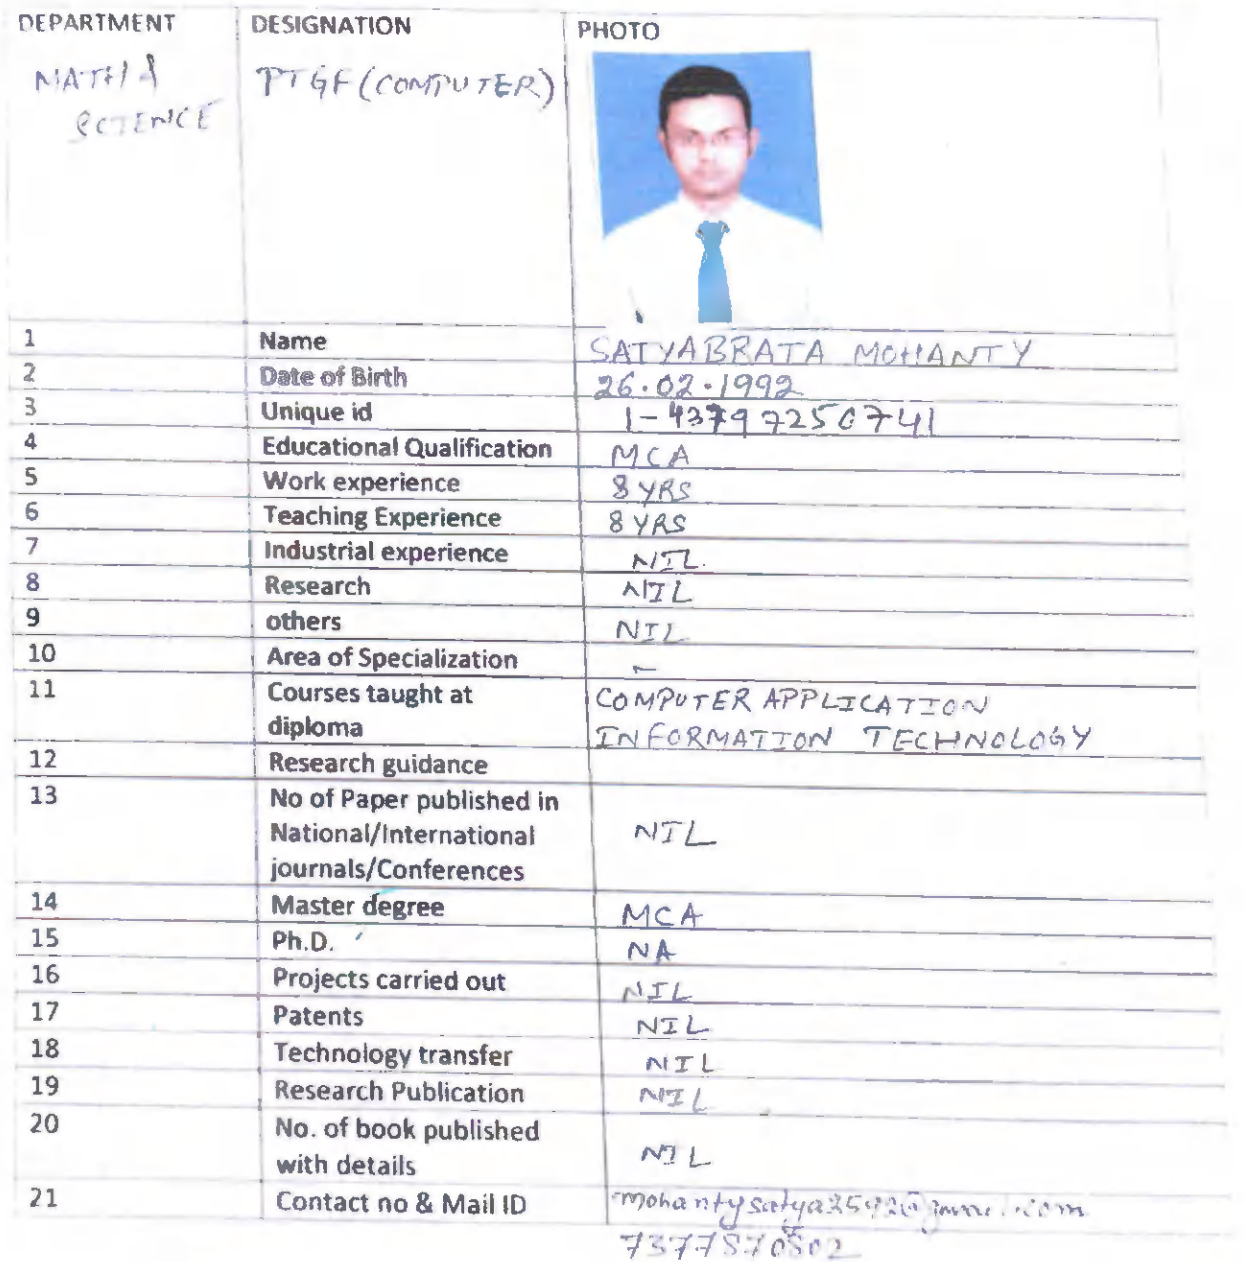 DEPARTMENT DESIGNATION PHOTO
MATH & PTGF (COMPUTER)
SCIENCE
1 Name SATYABRATA MOHANTY
2 Date of Birth 26.02.1992
3 Unique id 1-43797250741
4 Educational Qualification MCA
5 Work experience 8 YRS
6 Teaching Experience 8 YRS
7 Industrial experience NIL.
8 Research NIL
9 others NIL
10 Area of Specialization -
11 Courses taught at COMPUTER APPLICATION
diploma INFORMATION TECHNOLOGY
12 Research guidance
13 No of Paper published in
National/International NIL
journals/Conferences
14 Master degree MCA
15 Ph.D. NA
16 Projects carried out NIL
17 Patents NIL
18 Technology transfer NIL
19 Research Publication NIL
20 No. of book published
with details NIL
21 Contact no & Mail ID